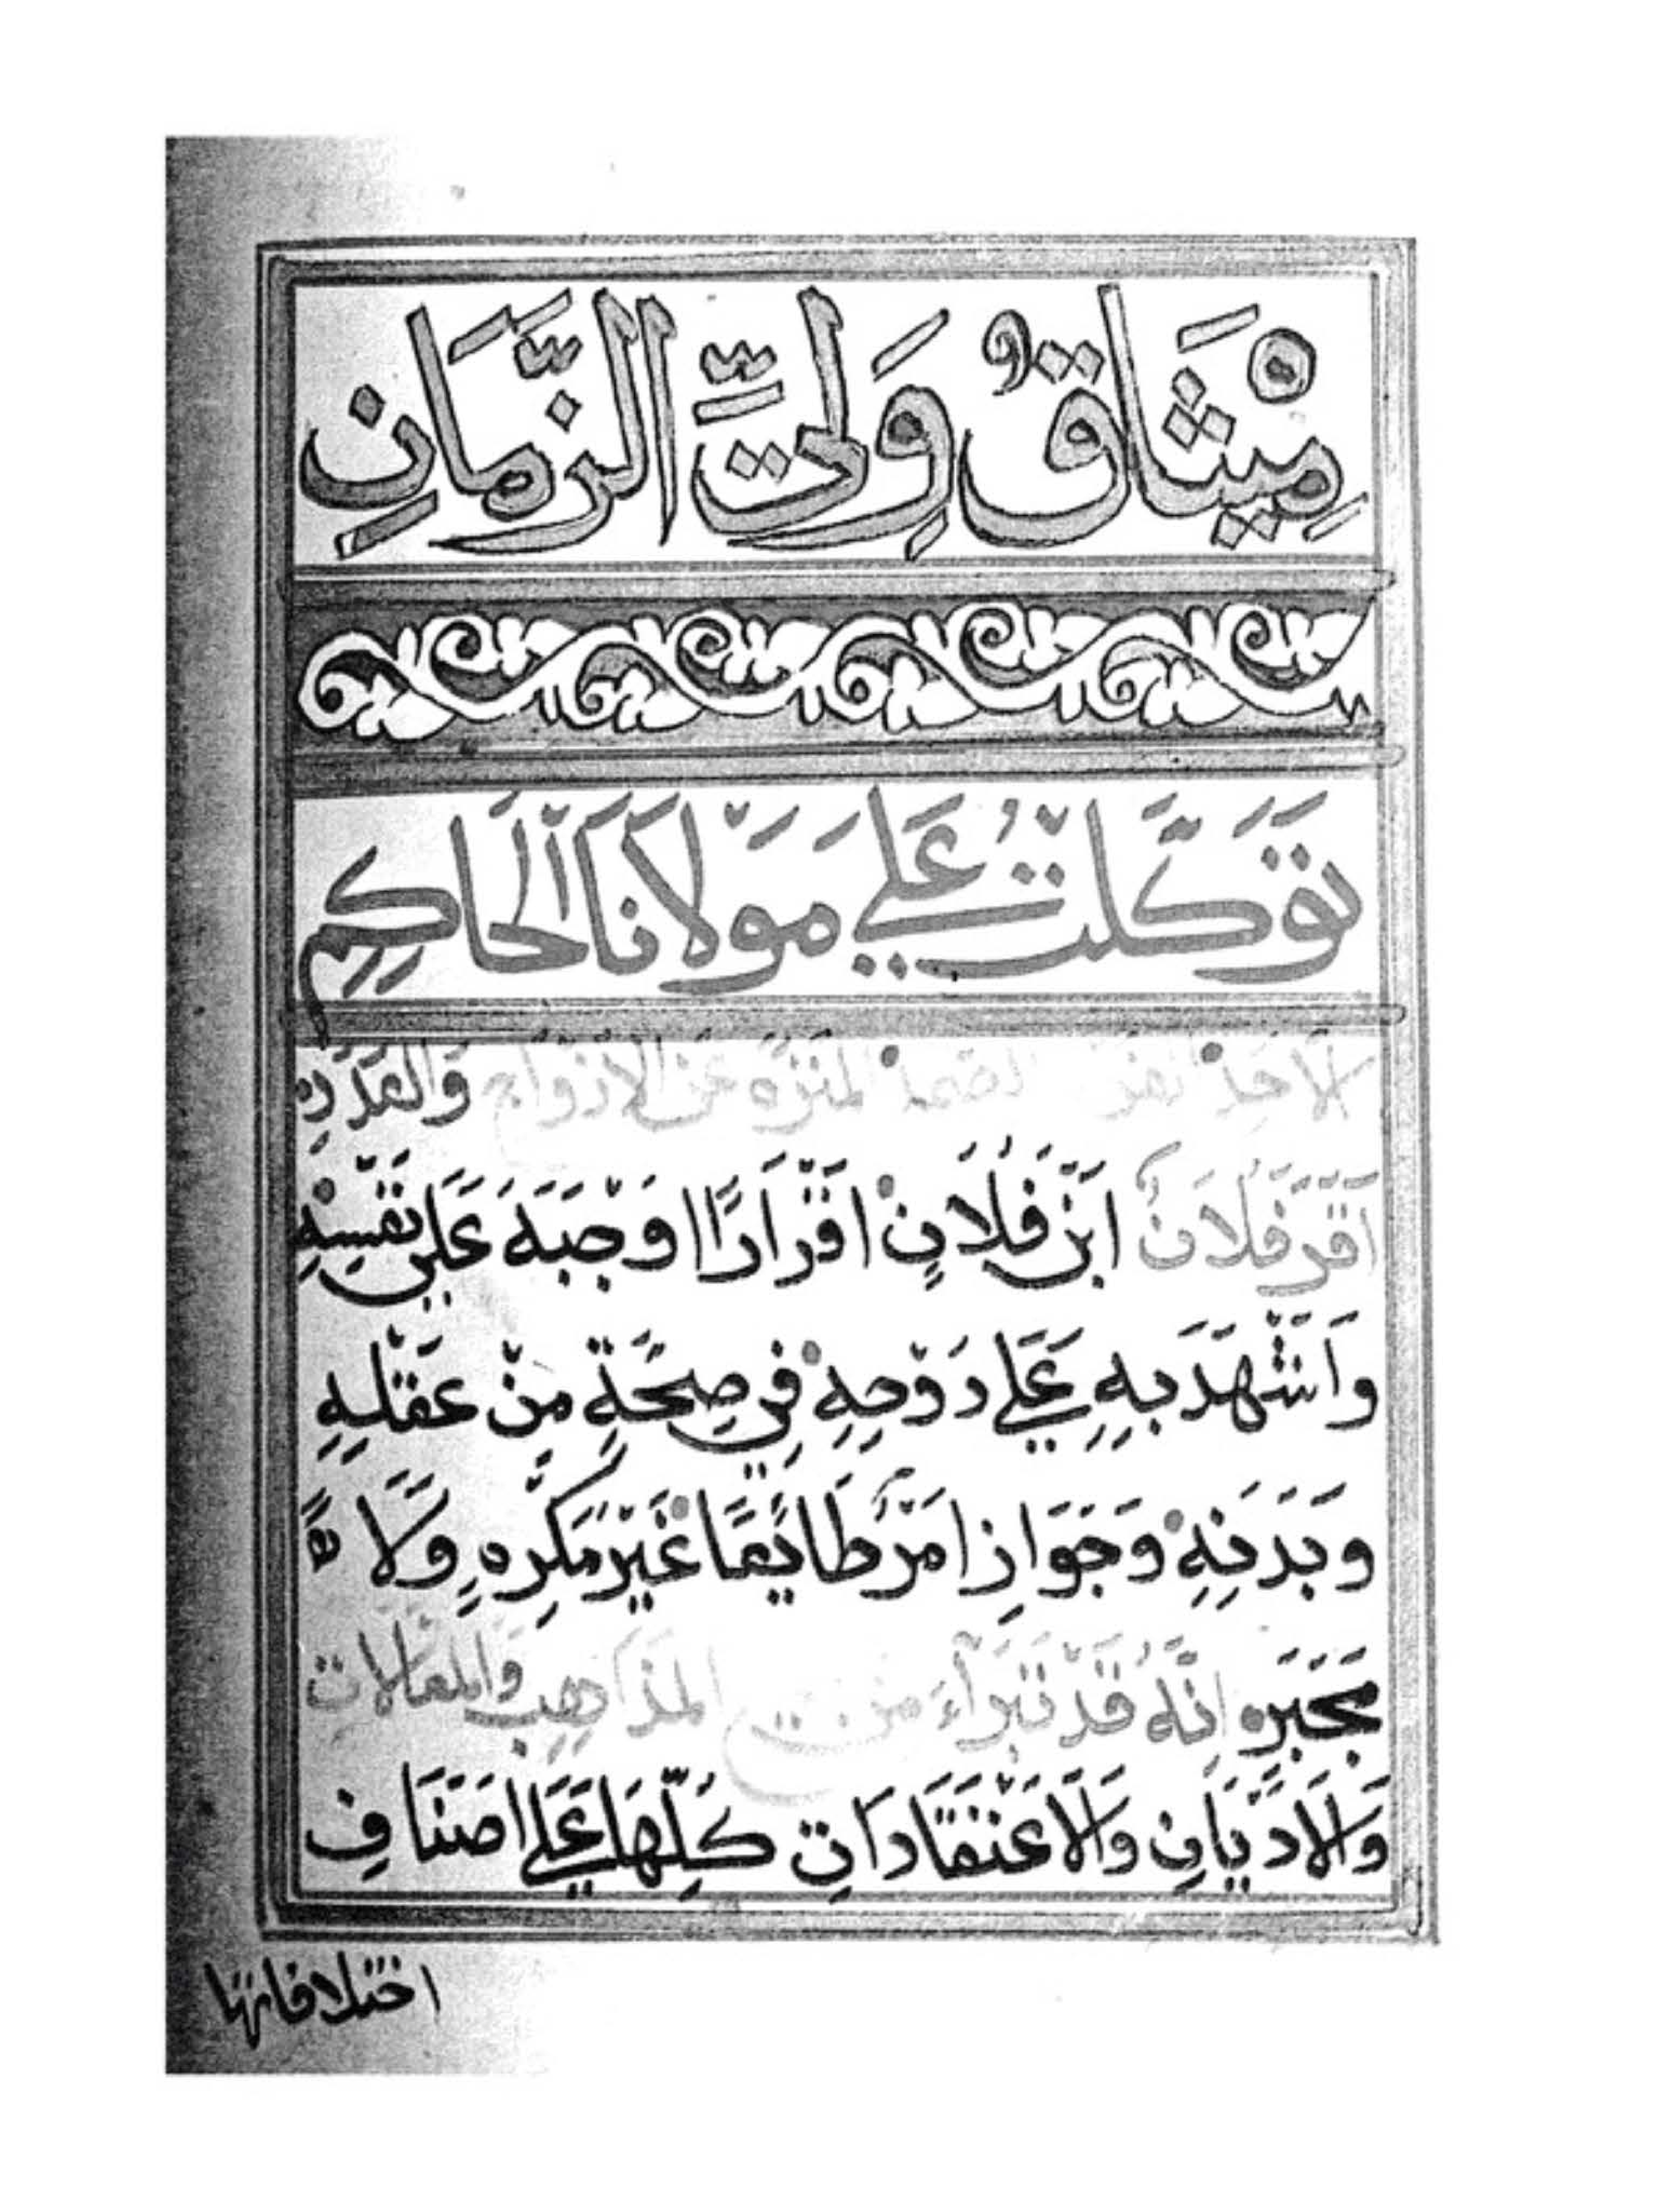 مِيْثَاقُ وَلِيِّ الزَّمَانِ
تَوَكَّلْتُ عَلَى مَوْلَانَا الْحَاكِمِ
الْأَحَدْ الفرد الصمد المنَزَّهِ عَنِ الْأَزْوَاجِ وَالعَدَدِ
أَقَرَّ فُلَانُ ابْنِ فُلَانٍ اقْرَارًا اوْجَبَهُ عَلَى نَفْسِهِ
وَاَشْهَدَ بِهِ عَلَى رَوْحِهِ فِي صِحَّةٍ مِنْ عَقْلِهِ
وَبَدَنِهِ وَجَوَازِ امْرٍ طَايِعًا غَيْرَ مُكْرَهٍ وَلَا
مجْبَرٍ انَّهُ قَدْ تَبَرَّأَ من جميع المذَاهِبِ وَالمقَالاتِ
وَالَادْيَانِ وَالَاعْتِقَادَاتِ كُلِّهَا عَلَى اصْنَافِ
اختلافاتها